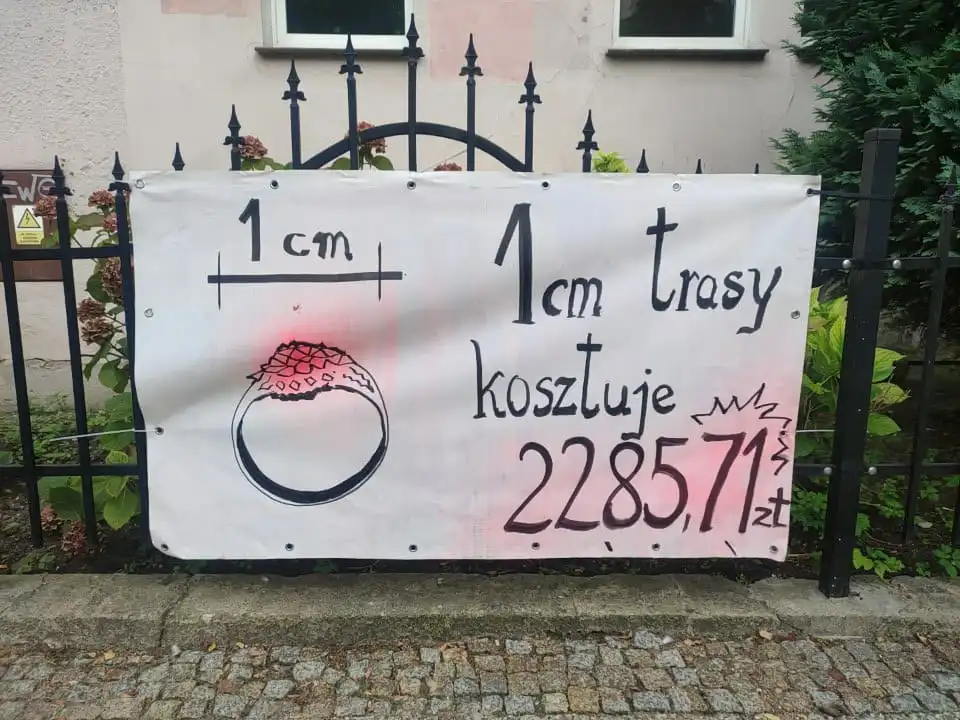 1 cm
1cm trasy
kosztuje
2285,71 zł